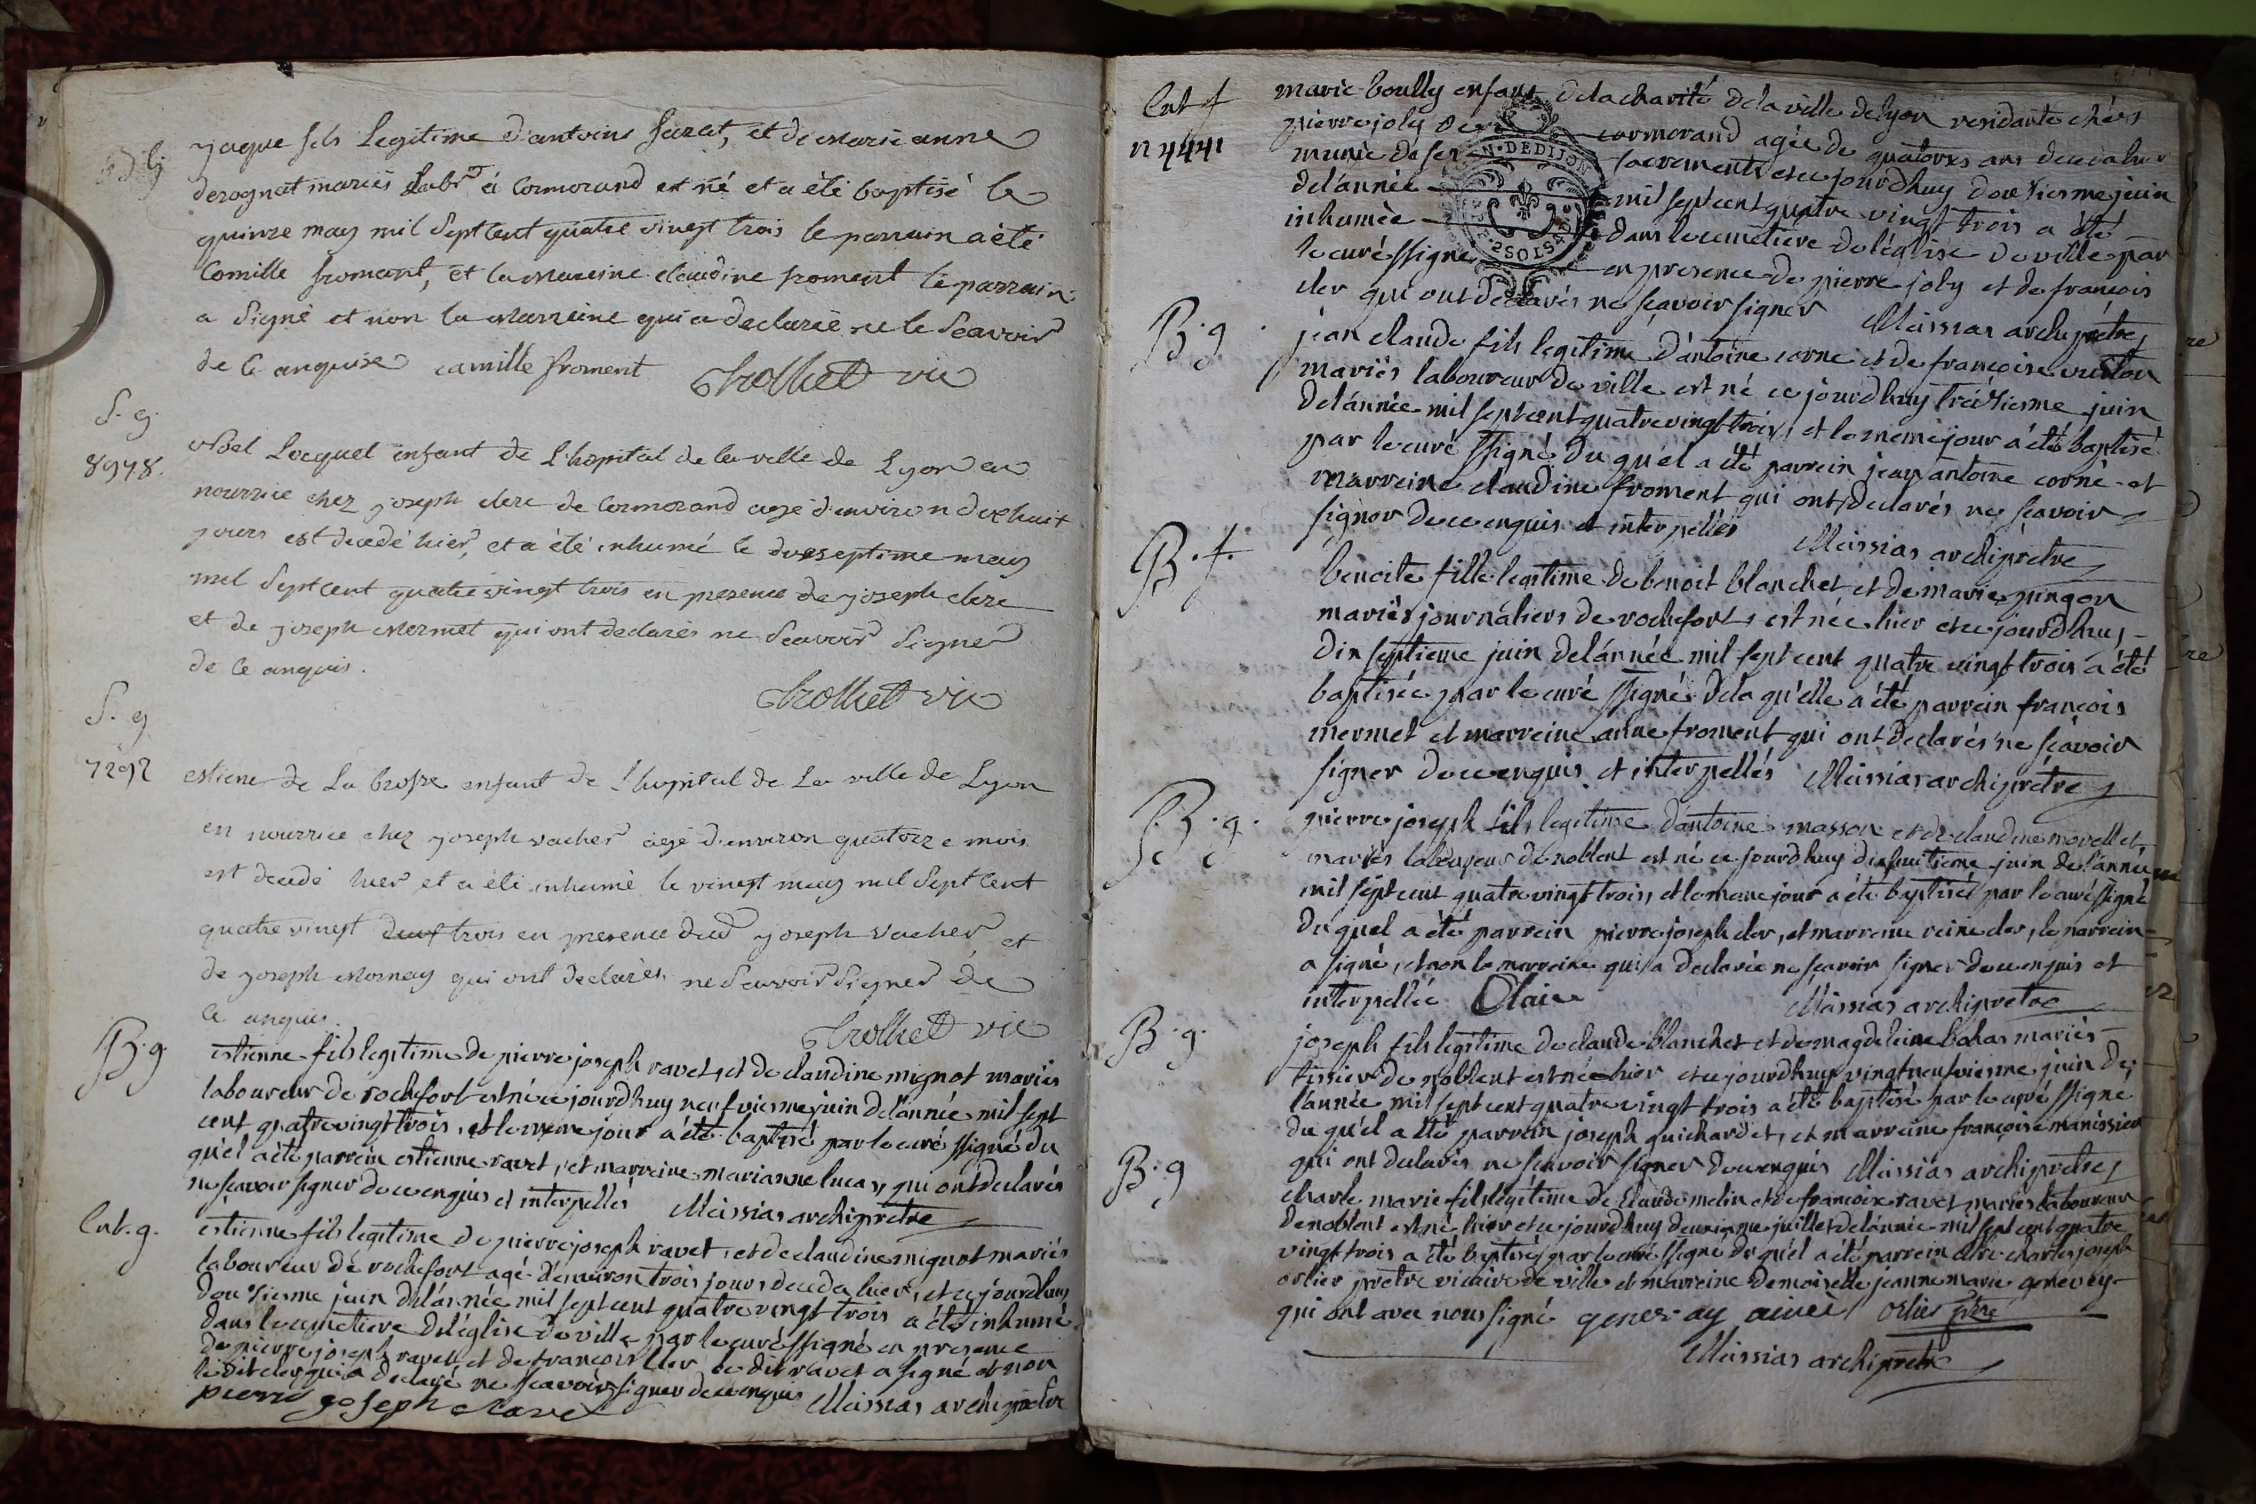 B. g
jaque fils Legitime d'antoine farat, et de Marie anne
derognat mariés Labr à Cormorand est né et a été baptisé le
quinze may mil Sept Cent quatre vingt trois le parrain a été
Camille froment, et la Maraine claudine froment le parrain
a Signé et non la Marraine qui a declarée ne le Scavoir
de Ce enquise camille froment Trolliet vic
S. g
8978.
Abel Lecquel enfant de L'hopital de la ville de Lyon en
nourrice chez joseph clerc de Cormorand agé d'environ dix huit
jours est decedé hier, et a été inhumé le dix septieme may
mil Sept Cent quatre vingt trois en presence de joseph clerc
et de joseph Mermet qui ont declarés ne Scavoir Signer
de Ce enquis.
Trolliet vic
S. g
7292
estiene de La brosse enfant de l'hopital de La ville de Lyon
en nourrice chez joseph vacher agé d'environ quatorze mois
est decedé hier et a été inhumé le vingt may mil Sept Cent
quatre vingt deux trois en presence dud joseph vacher et
de joseph Mornay qui ont declarés ne Scavoir Signer de
Ce enquis.
Trolliet vic
B. g.
estienne fils legitime de pierre joseph ravet, et de claudine mignot mariés
laboureur de rochefort est né ce jourdhuy neufviesme juin de l'année mil sept
cent quatre vingt trois, et le meme jour a été baptisé par le curé ssigné du
quel a été parrein estienne ravet, et marreine marianne lucas, qui ont declarés
ne scavoir signer de ce enquis et interpellés Meissias archiprêtre
Ent. g.
estienne fils legitime de pierre joseph ravet, et de claudine mignot mariés
laboureur de rochefort agé d'environ trois jours deceda hier, et ce jourdhuy
douziesme juin de l'année mil sept cent quatre vingt trois a été inhumé
dans le cemetiere de l'église de ville par le curé ssigné en presence
de pierre joseph ravet et de francois cler le dit ravet a signé et non
le dit cler qui a declaré ne scavoir signer de ce enquis Meissias archiprêtre
pierre joseph Ravet
Ent f
n 4441
marie boully enfant de la charité de la ville de lyon residante chés
pierre joly de cormorand agée de quatorze ans deceda hier
munie de ses sacrements et ce jourdhuy douziesme juin
de l'année mil sept cent quatre vingt trois a été
inhumée dans le cemetiere de l'église de ville par
le curé ssigné en presence de pierre joly et de francois
cler qui ont declarés ne scavoir signer Meissias archiprêtre
GEN. DE DIJON
2 SOLS
B. g.
jean claude fils legitime d'antoine corne et de francoise
mariés laboureur de ville est né ce jourdhuy treiziesme juin
de l'année mil sept cent quatre vingt trois, et le meme jour a été baptisé
par le curé ssigné du quel a été parrein jean antoine corné et
marreine claudine froment qui ont declarés ne scavoir
signer de ce enquis et interpellés Meissias archiprêtre
B. f.
benoite fille legitime de benoit blanchet et de marie pingon
mariés journaliers de rochefort, est née hier et ce jourdhuy
dix septieme juin de l'année mil sept cent quatre vingt trois a été
baptisée par le curé ssigné de la quelle a été parrein francois
mermet et marreine anne froment qui ont declarés ne scavoir
signer de ce enquis et interpellés Meissias archiprêtre
B. g.
pierre joseph fils legitime d'antoine masson et de claudine morellet
mariés laboureur de noblent est né ce jourdhuy dix huitieme juin de l'année
mil sept cent quatre vingt trois, et le meme jour a été baptisé par le curé ssigné
du quel a été parrein pierre joseph cler, et marreine reine cler, le parrein
a signé, et non la marreine qui a declarée ne scavoir signer de ce enquis et
interpellée Claire Meissias archiprêtre
B. g.
joseph fils legitime de claude blanchet et de magdeleine bohas mariés
tissier de noblent est né hier et ce jourdhuy vingt neufviesme juin de
l'année mil sept cent quatre vingt trois a été baptisé par le curé ssigné
du quel a été parrein joseph guichardet, et marreine francoise manissier
qui ont declarés ne scavoir signer de ce enquis Meissias archiprêtre
B. g
charle marie fils legitime de claude melin et de francoise ravet mariés laboureur
de noblent est né hier et ce jourdhuy deuxieme juillet de l'année mil sept cent quatre
vingt trois a été baptisé par le curé ssigné du quel a été parrein charles joseph
orlier pretre vicaire de ville et marreine demoiselle jeanne marie genevey
qui ont avec nous signé genevay ainée Orlier ptre
Meissias archiprêtre